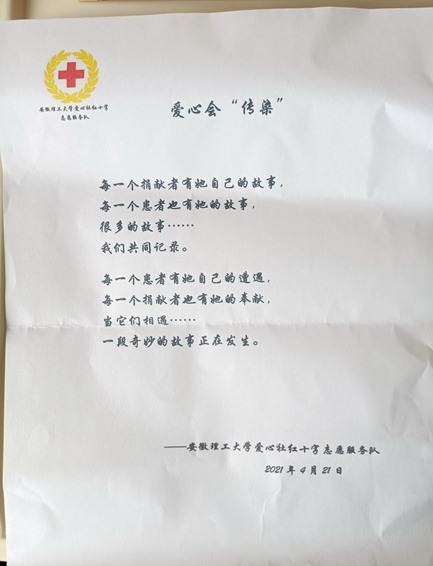 安徽理工大学爱心社红十字
志愿服务队
爱心会“传染”
每一个捐献者有她自己的故事，
每一个患者也有她的故事，
很多的故事……
我们共同记录。
每一个患者有她自己的遭遇，
每一个捐献者也有她的奉献，
当它们相遇……
一段奇妙的故事正在发生。
——安徽理工大学爱心社红十字志愿服务队
2021年4月21日